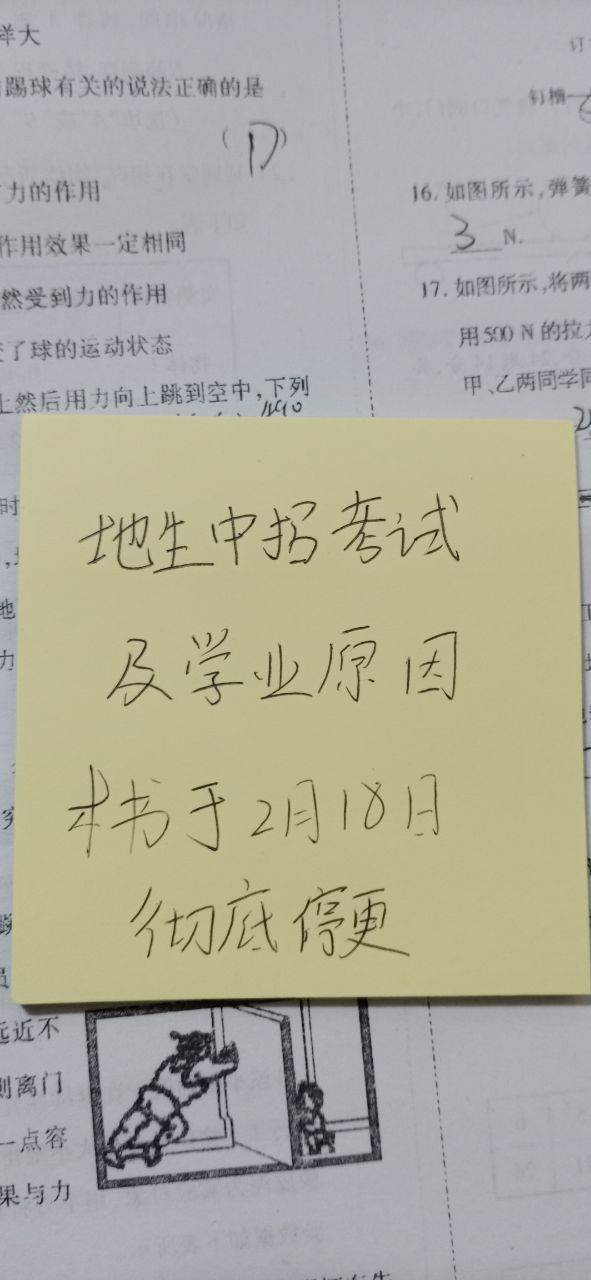 样大
踢球有关的说法正确的是
(D)
力的作用
作用效果一定相同
然受到力的作用
了球的运动状态
上然后用力向上跳到空中,下列
490
时
地
力
地生中招考试
及学业原因
本书于2月18日
彻底停更
远近不
则离门
一点容
果与力
订
钉槽
16. 如图所示,弹簧
3 N.
17. 如图所示,将两
用500 N的拉力
甲、乙两同学同